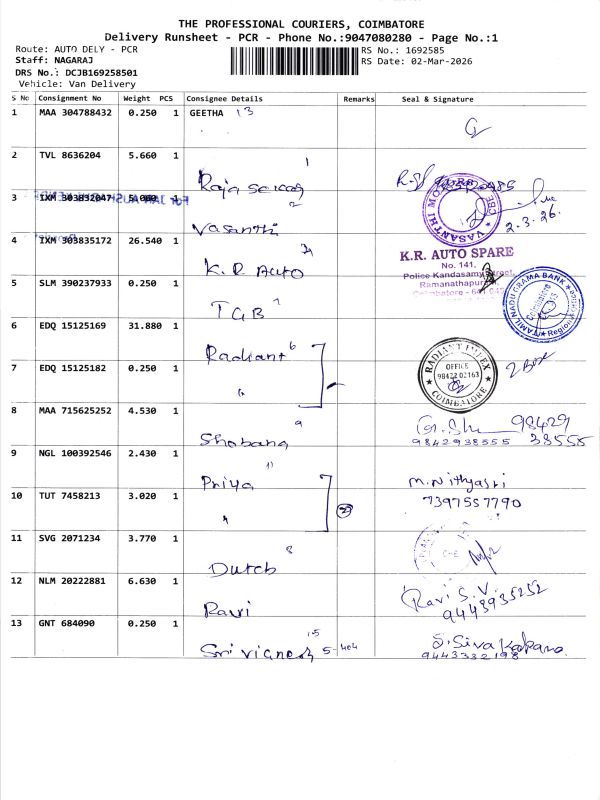 THE PROFESSIONAL COURIERS, COIMBATORE
Delivery Runsheet - PCR - Phone No.:9047080280 - Page No.:1
Route: AUTO DELY - PCR
RS No.: 1692585
Staff: NAGARAJ
RS Date: 02-Mar-2026
DRS No.: DCJB169258501
Vehicle: Van Delivery
S No Consignment No Weight PCS Consignee Details Remarks Seal & Signature
1 MAA 304788432 0.250 1 GEETHA 13
2 TVL 8636204 5.660 1
Raja
3 IXM 303832047 5.000 1
Vasanthi
VASANTHI CBE
2.3.26.
4 IXM 303835172 26.540 1
K.R Auto
K.R. AUTO SPARE
No. 141,
Police Kandasamy Street,
Ramanathapuram
Coimbatore
5 SLM 390237933 0.250 1
TGB
TAMIL NADU GRAMA BANK
Coimbatore
6 EDQ 15125169 31.880 1
Radiant
RADIANT IMPEX
OFFICE
98422 02163
COIMBATORE
2 Box
7 EDQ 15125182 0.250 1
8 MAA 715625252 4.530 1
Shobana
98429
9842938555 38555
9 NGL 100392546 2.430 1
Priya
M. Nithyasri
7397557790
10 TUT 7458213 3.020 1
2
11 SVG 2071234 3.770 1
8
Dutch
12 NLM 20222881 6.630 1
Ravi
Ravi S.V.
9443935252
13 GNT 684090 0.250 1
15
Sri Vignesh 5-404
S. Siva
9443332198